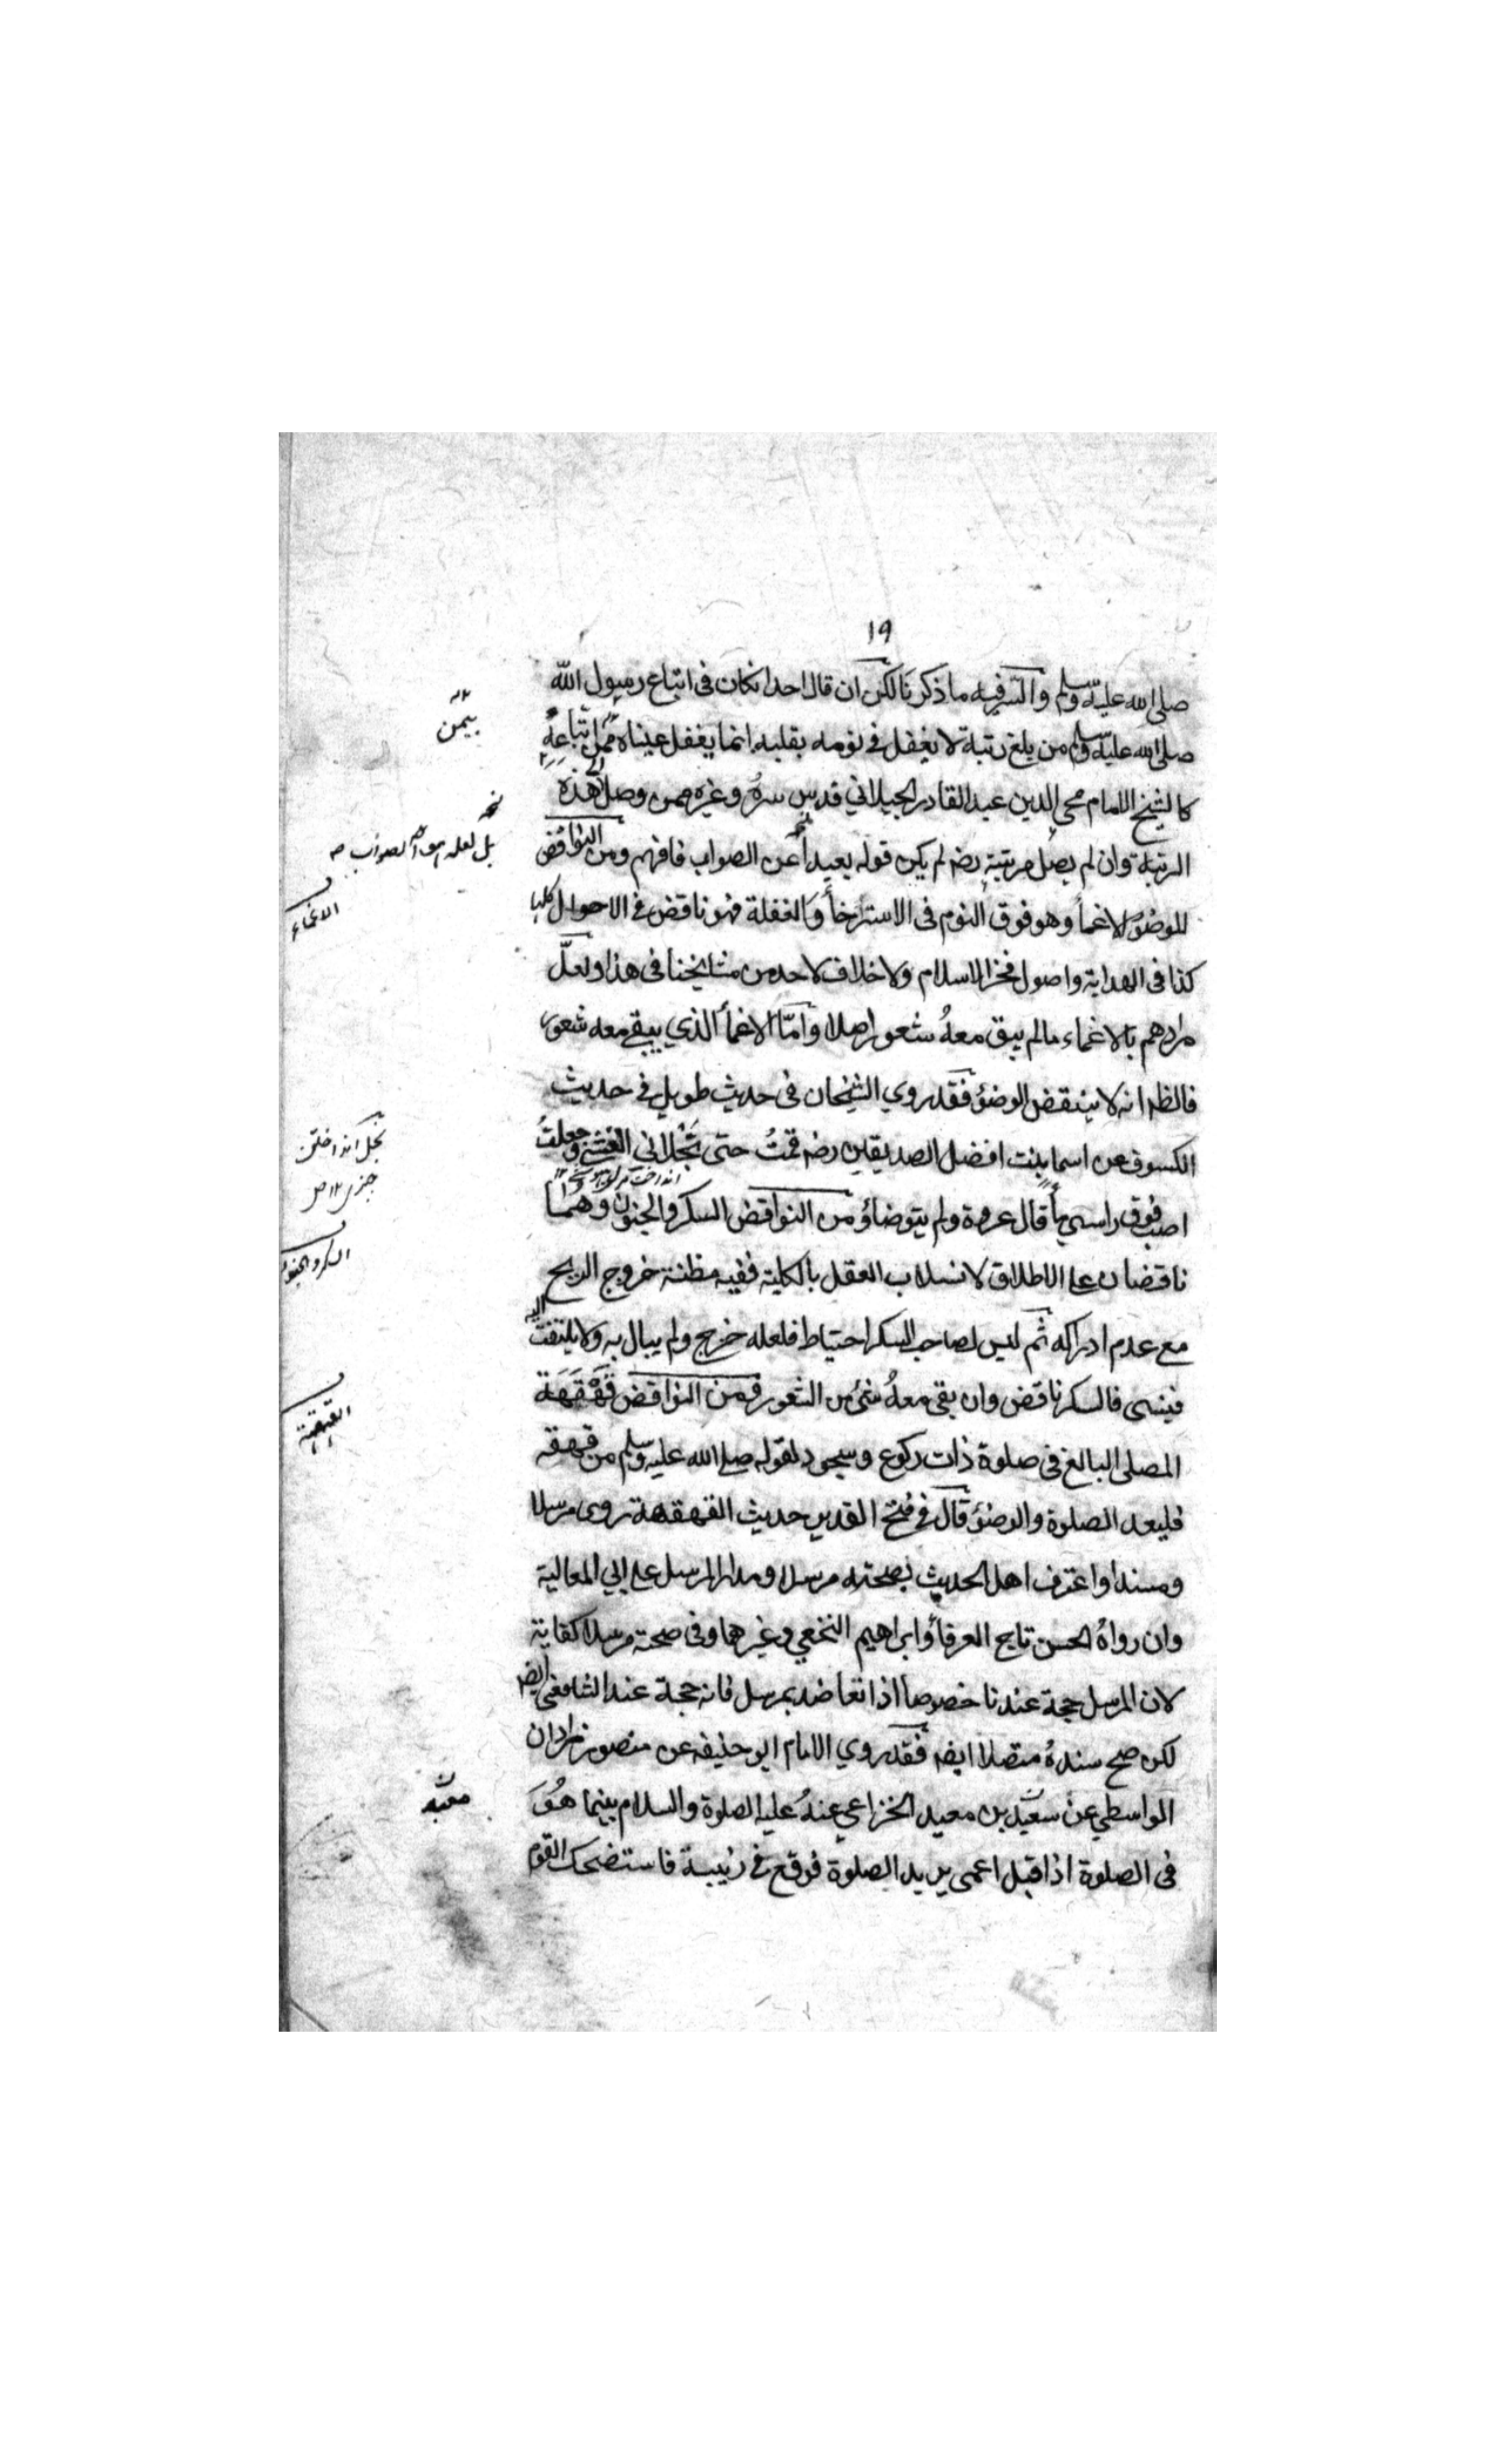 ١٩
صلى الله عليه وسلم والسرفيه ما ذكرنا لكن ان قال احد انكان فى اتباع رسول الله
صلى الله عليه وسلم من بلغ رتبة لا يغفل فى نومه بقلبه انما يغفل عيناه من اتباعه
بيمن
كالشيخ الامام محى الدين عبد القادر الجيلاني قدس سره وغيره ممن وصل الى هذه
الرتبة وان لم يصل مرتبته رضه لم يكن قوله بعيداً عن الصواب فافهم ومن النواقض
بل لعله هو الصواب صه
للوضؤ الاغمأ وهو فوق النوم فى الاسترخأ والغفلة فهو ناقض فى الاحوال كلها
الاغماء
كذا فى الهداية واصول فخر الاسلام ولا خلاف لاحد من مشايخنا فى هذا ولعلّ
مرادهم بالاغماء مالم يبق معهُ شعور اصلا وامّا الاغمأ الذي يبقى معه شعور
فالظه انه لا ينتقض الوضؤ فقد روي الشيخان فى حديث طويل فى حديث
الكسوف عن اسما بنت افضل الصديقين رضه قمتُ حتى تجلاني الغشي وجعلتُ
اصب فوق راسي مأ قال عروة ولم يتوضاؤ من النواقض السكر والجنون وهما
السكر والجنون
ناقضان على الاطلاق لانسلاب العقل بالكلية ففيه مظنة خروج الريح
مع عدم ادراكه ثم ليس لصاحب السكر احتياط فلعله خرج ولم يبال به ولا يلتفت اليه
فينسى فالسكر ناقض وان بقى معهُ شئ من الشعور ومن النواقض قَهْقَهَة
القهقهة
المصلى البالغ فى صلوة ذات ركوع وسجود لقوله صلى الله عليه وسلم من قهقه
فليعد الصلوة والوضؤ قال فى فتح القدير حديث القهقهة روى مرسلا
ومسندا واعترف اهل الحديث بصحته مرسلا ومدار المرسل على ابي المعالية
وان رواهُ الحسن تاج العرفأ وابراهيم النخعي وغيرهما وفى صحته مرسلا كفاية
لان المرسل حجة عندنا خصوصاً اذا تعاضد بمرسل فانه حجة عند الشافعى ايضه
لكن صح سندهُ متصلا ايضه فقد روي الامام ابو حنيفه عن منصور زادان
الواسطي عن سعيد بن معيد الخزاعي عنهُ عليه الصلوة والسلام بينما هُوَ
معبد
فى الصلوة اذا قبل اعمى يريد الصلوة فوقع فى زبيبة فاستضحك القوم